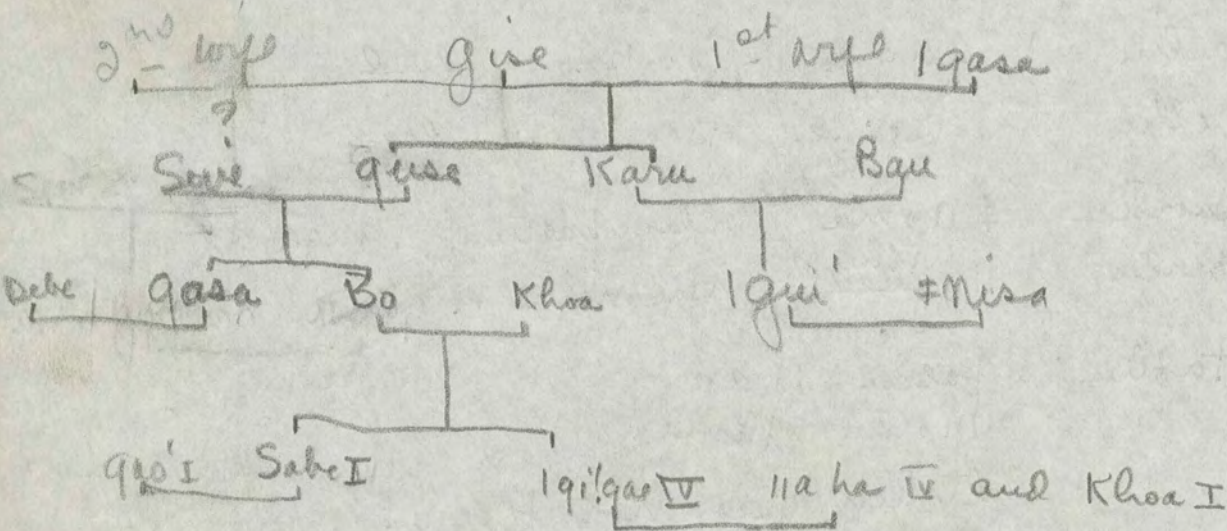 2nd wife Gise 1st wife |qasa
?
Suie guse Karu Bau
Debe qasa Bo Khoa |gui' ≠Nisa
gao' I Sabe I |qi!gae IV ||a ha IV and Khoa I